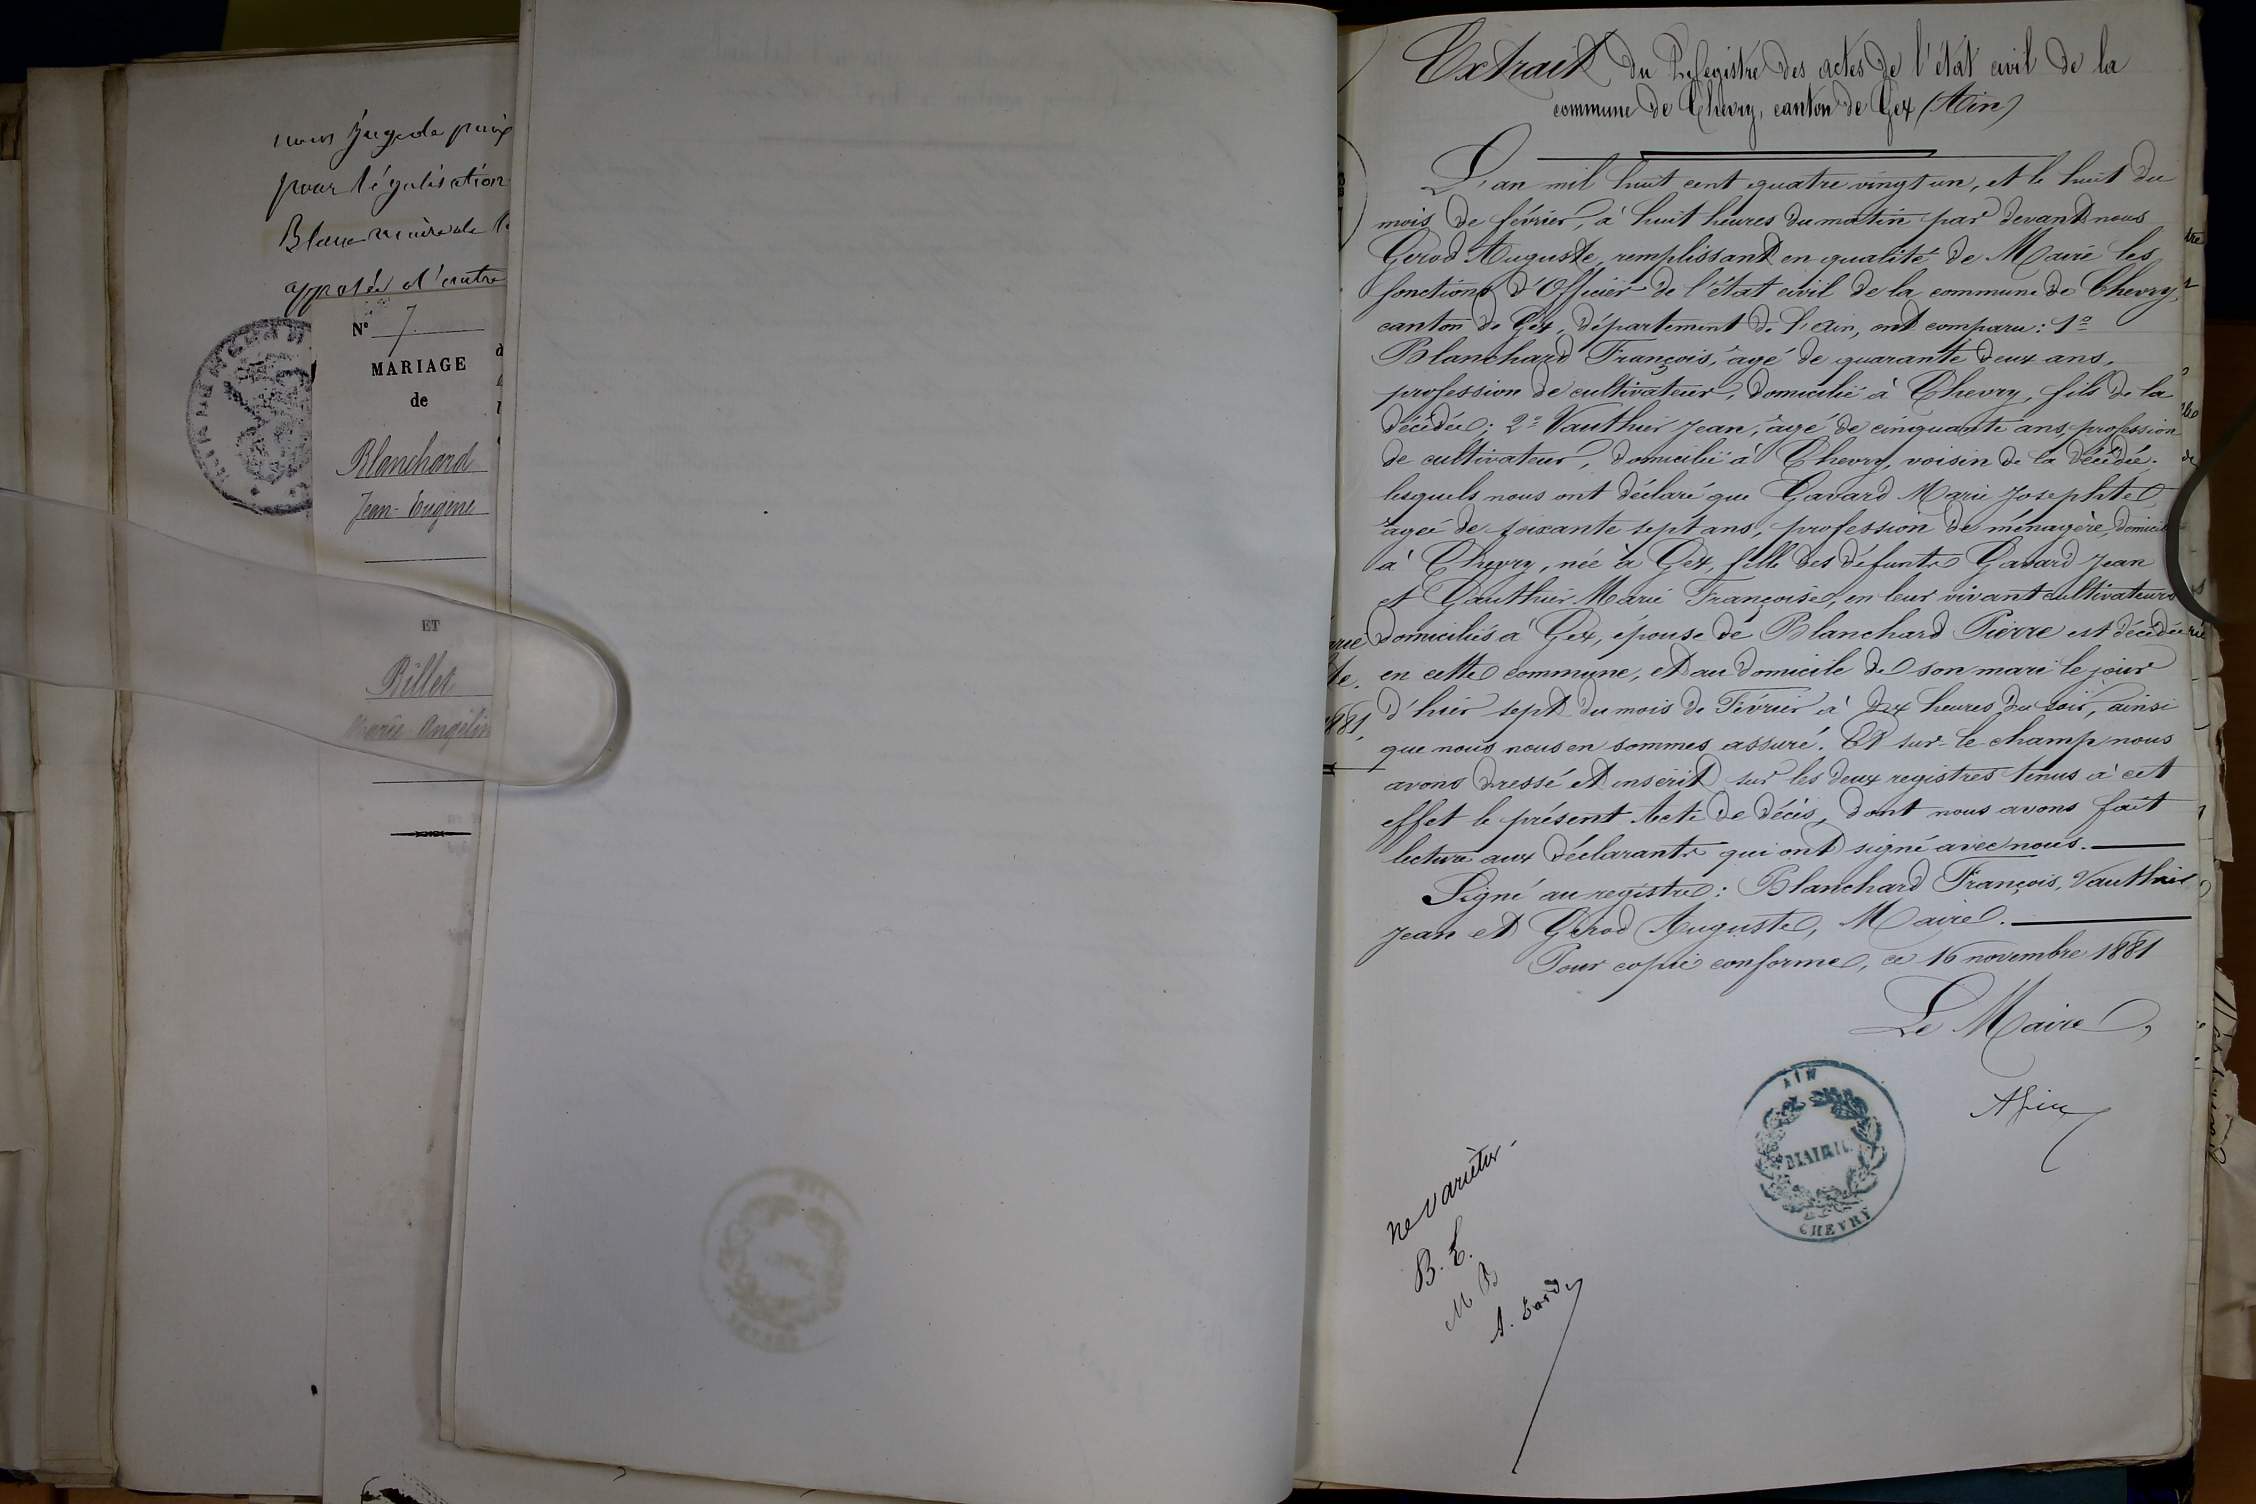 pour légalisation
apposée d'autre
N° 7
MARIAGE
de
Blanchard
Jean-Eugène
ET
Billet
Marie Angélin
Extrait du Registre des actes de l'état civil de la
commune de Chevry, canton de Gex (Ain)
L'an mil huit cent quatre vingt un, et le huit du
mois de février, à huit heures du matin par devant nous
Gerod Auguste, remplissant en qualité de Maire les
fonctions d'Officier de l'état civil de la commune de Chevry,
canton de Gex, département de l'Ain, ont comparu: 1°
Blanchard François, âgé de quarante deux ans,
profession de cultivateur, domicilié à Chevry, fils de la
décédée; 2° Vauthier Jean, âgé de cinquante ans, profession
de cultivateur, domicilié à Chevry, voisin de la décédée.
lesquels nous ont déclaré que Gavard Marie Josephte
âgée de soixante sept ans, profession de ménagère, domicil
à Chevry, née à Gex, fille des défunts Gavard Jean
et Gauthier Marie Françoise, en leur vivant cultivateurs
domiciliés à Gex, épouse de Blanchard Pierre est décédée
en cette commune, et au domicile de son mari le jour
d'hier sept du mois de Février à dix heures du soir, ainsi
que nous nous en sommes assuré. Et sur-le-champ nous
avons dressé et inscrit sur les deux registres tenus à cet
effet le présent Acte de décès, dont nous avons fait
lecture aux déclarants qui ont signé avec nous.
Signé au registre: Blanchard François, Vauthier
Jean et Gerod Auguste, Maire.
Pour copie conforme, ce 16 novembre 1881
Le Maire,
AIN
MAIRIE
DE
CHEVRY
ne varietur.
B. E.
M B